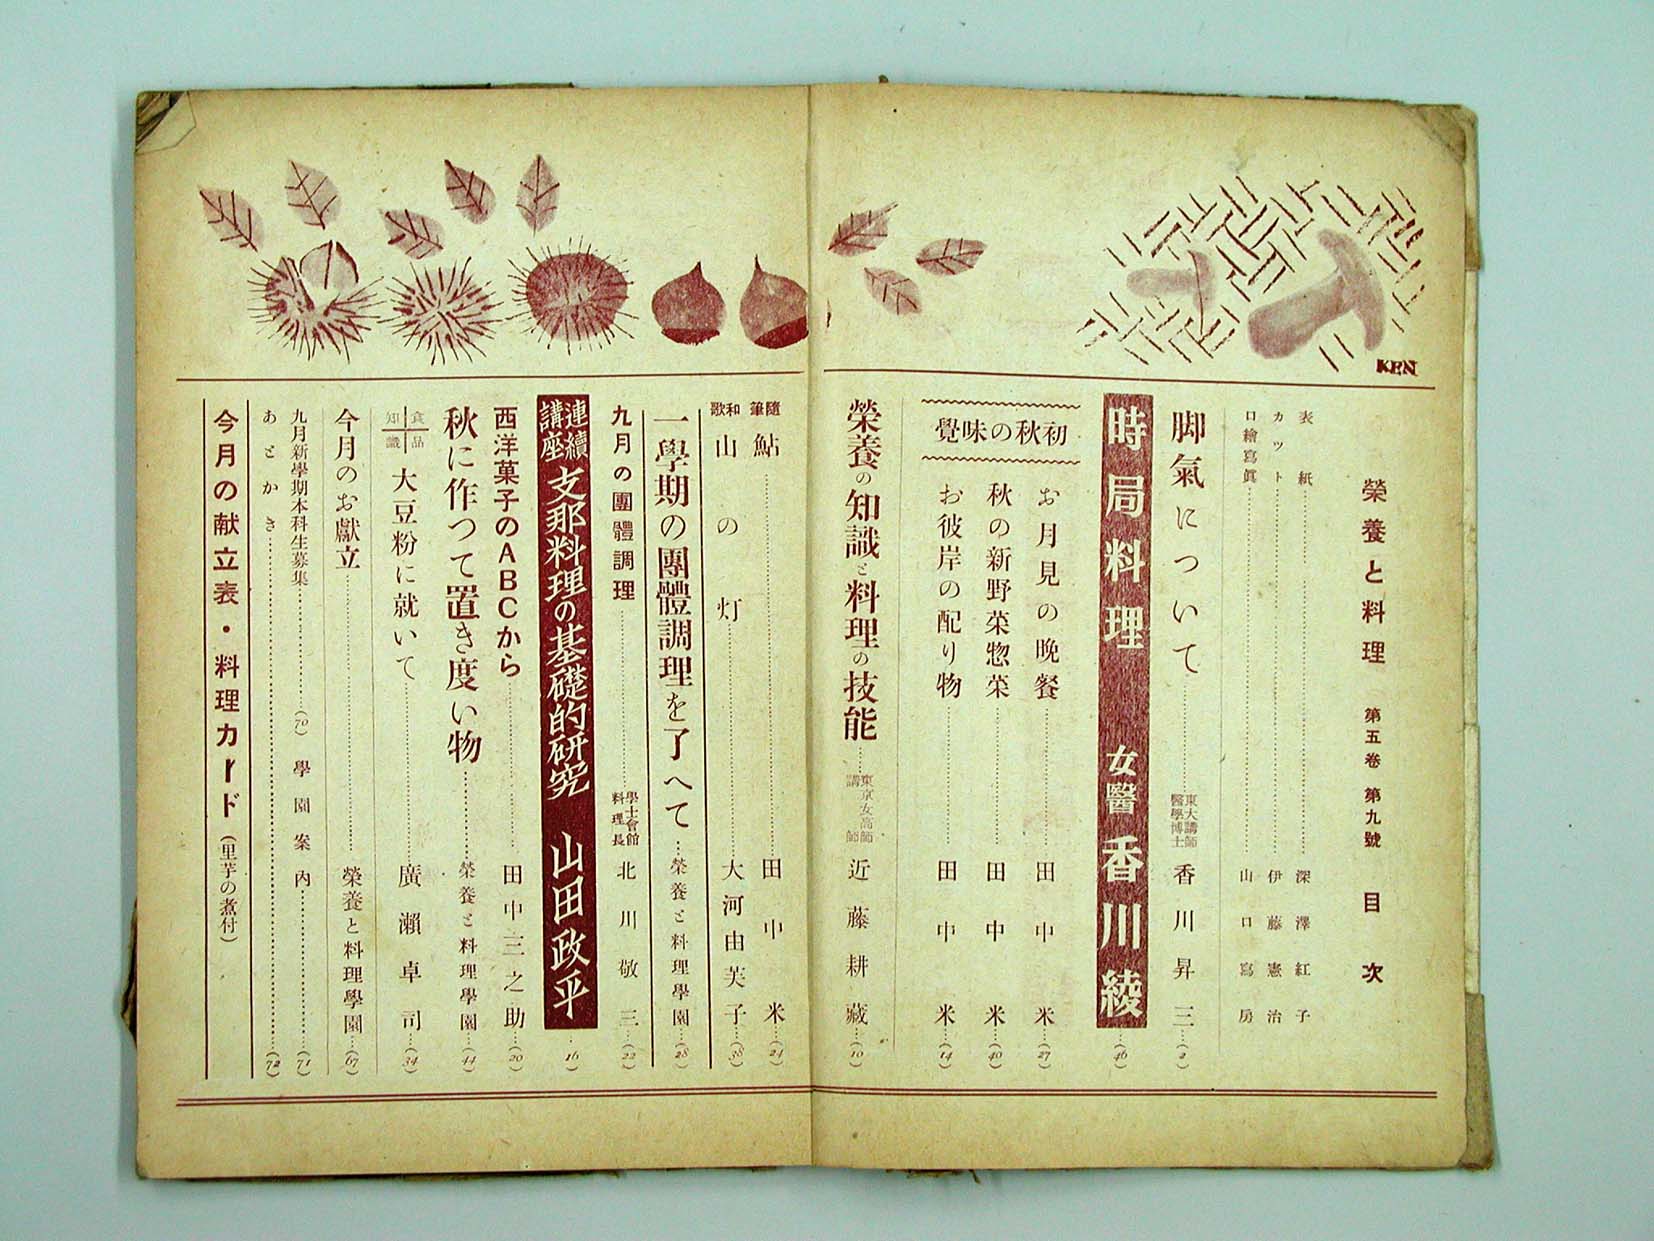 榮養と料理 第五卷 第九號 目次
表紙……深澤紅子
カット……伊藤憲治
口繪寫眞……山口寫房
脚氣について……東大講師 醫學博士 香川昇三…(2)
時局料理 女醫 香川綾…(46)
初秋の味覺
お月見の晩餐……田中米…(27)
秋の新野菜惣菜……田中米…(40)
お彼岸の配り物……田中米…(14)
榮養の知識と料理の技能……東京女高師 講師 近藤耕藏…(10)
隨筆 鮎……田中米…(24)
和歌 山の灯……大河由芙子…(38)
一學期の團體調理を了へて…榮養と料理學園…(28)
九月の團體調理……學士會館 料理長 北川敬三…(22)
連續講座 支那料理の基礎的研究 山田政平…(16)
西洋菓子のABCから……田中三之助…(20)
秋に作つて置き度い物……榮養と料理學園…(44)
食品知識 大豆粉に就いて……廣瀨卓司…(34)
今月のお獻立……榮養と料理學園…(67)
九月新學期本科生募集……(70) 學園案內……(71)
あとかき……(72)
今月の献立表・料理カード(里芋の煮付)
KEN